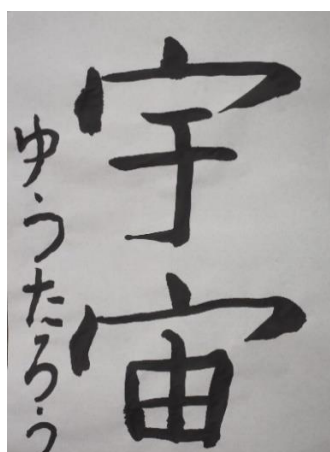 宇宙
ゆうたろう